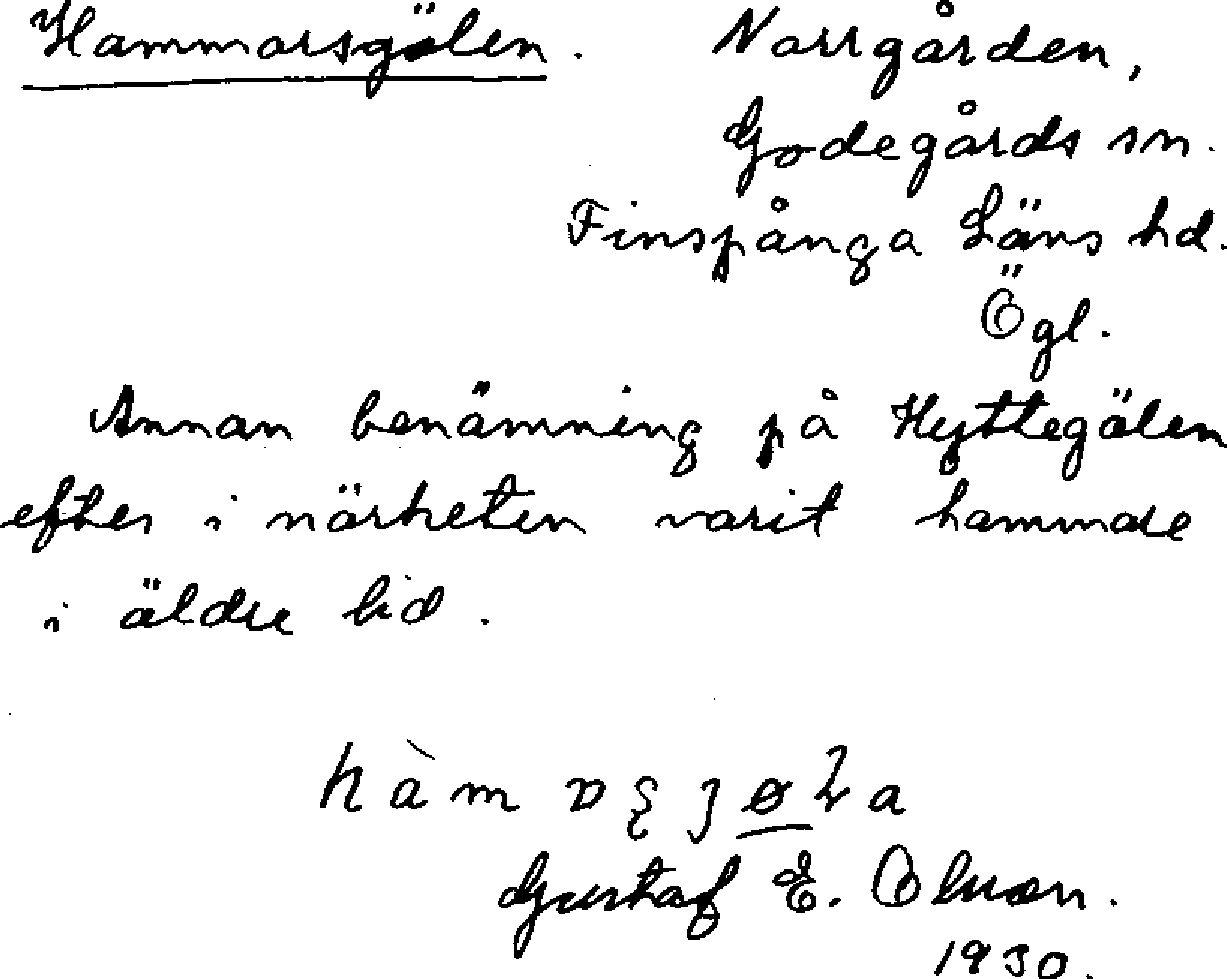 Hammarsgölen. Norrgården,
Godegårds sn.
Finspånga Läns hd.
Ögl.
Annan benämning på Hyttegölen
efter i närheten varit hammare
i äldre tid.
Gustaf E. Olsson.
1930.